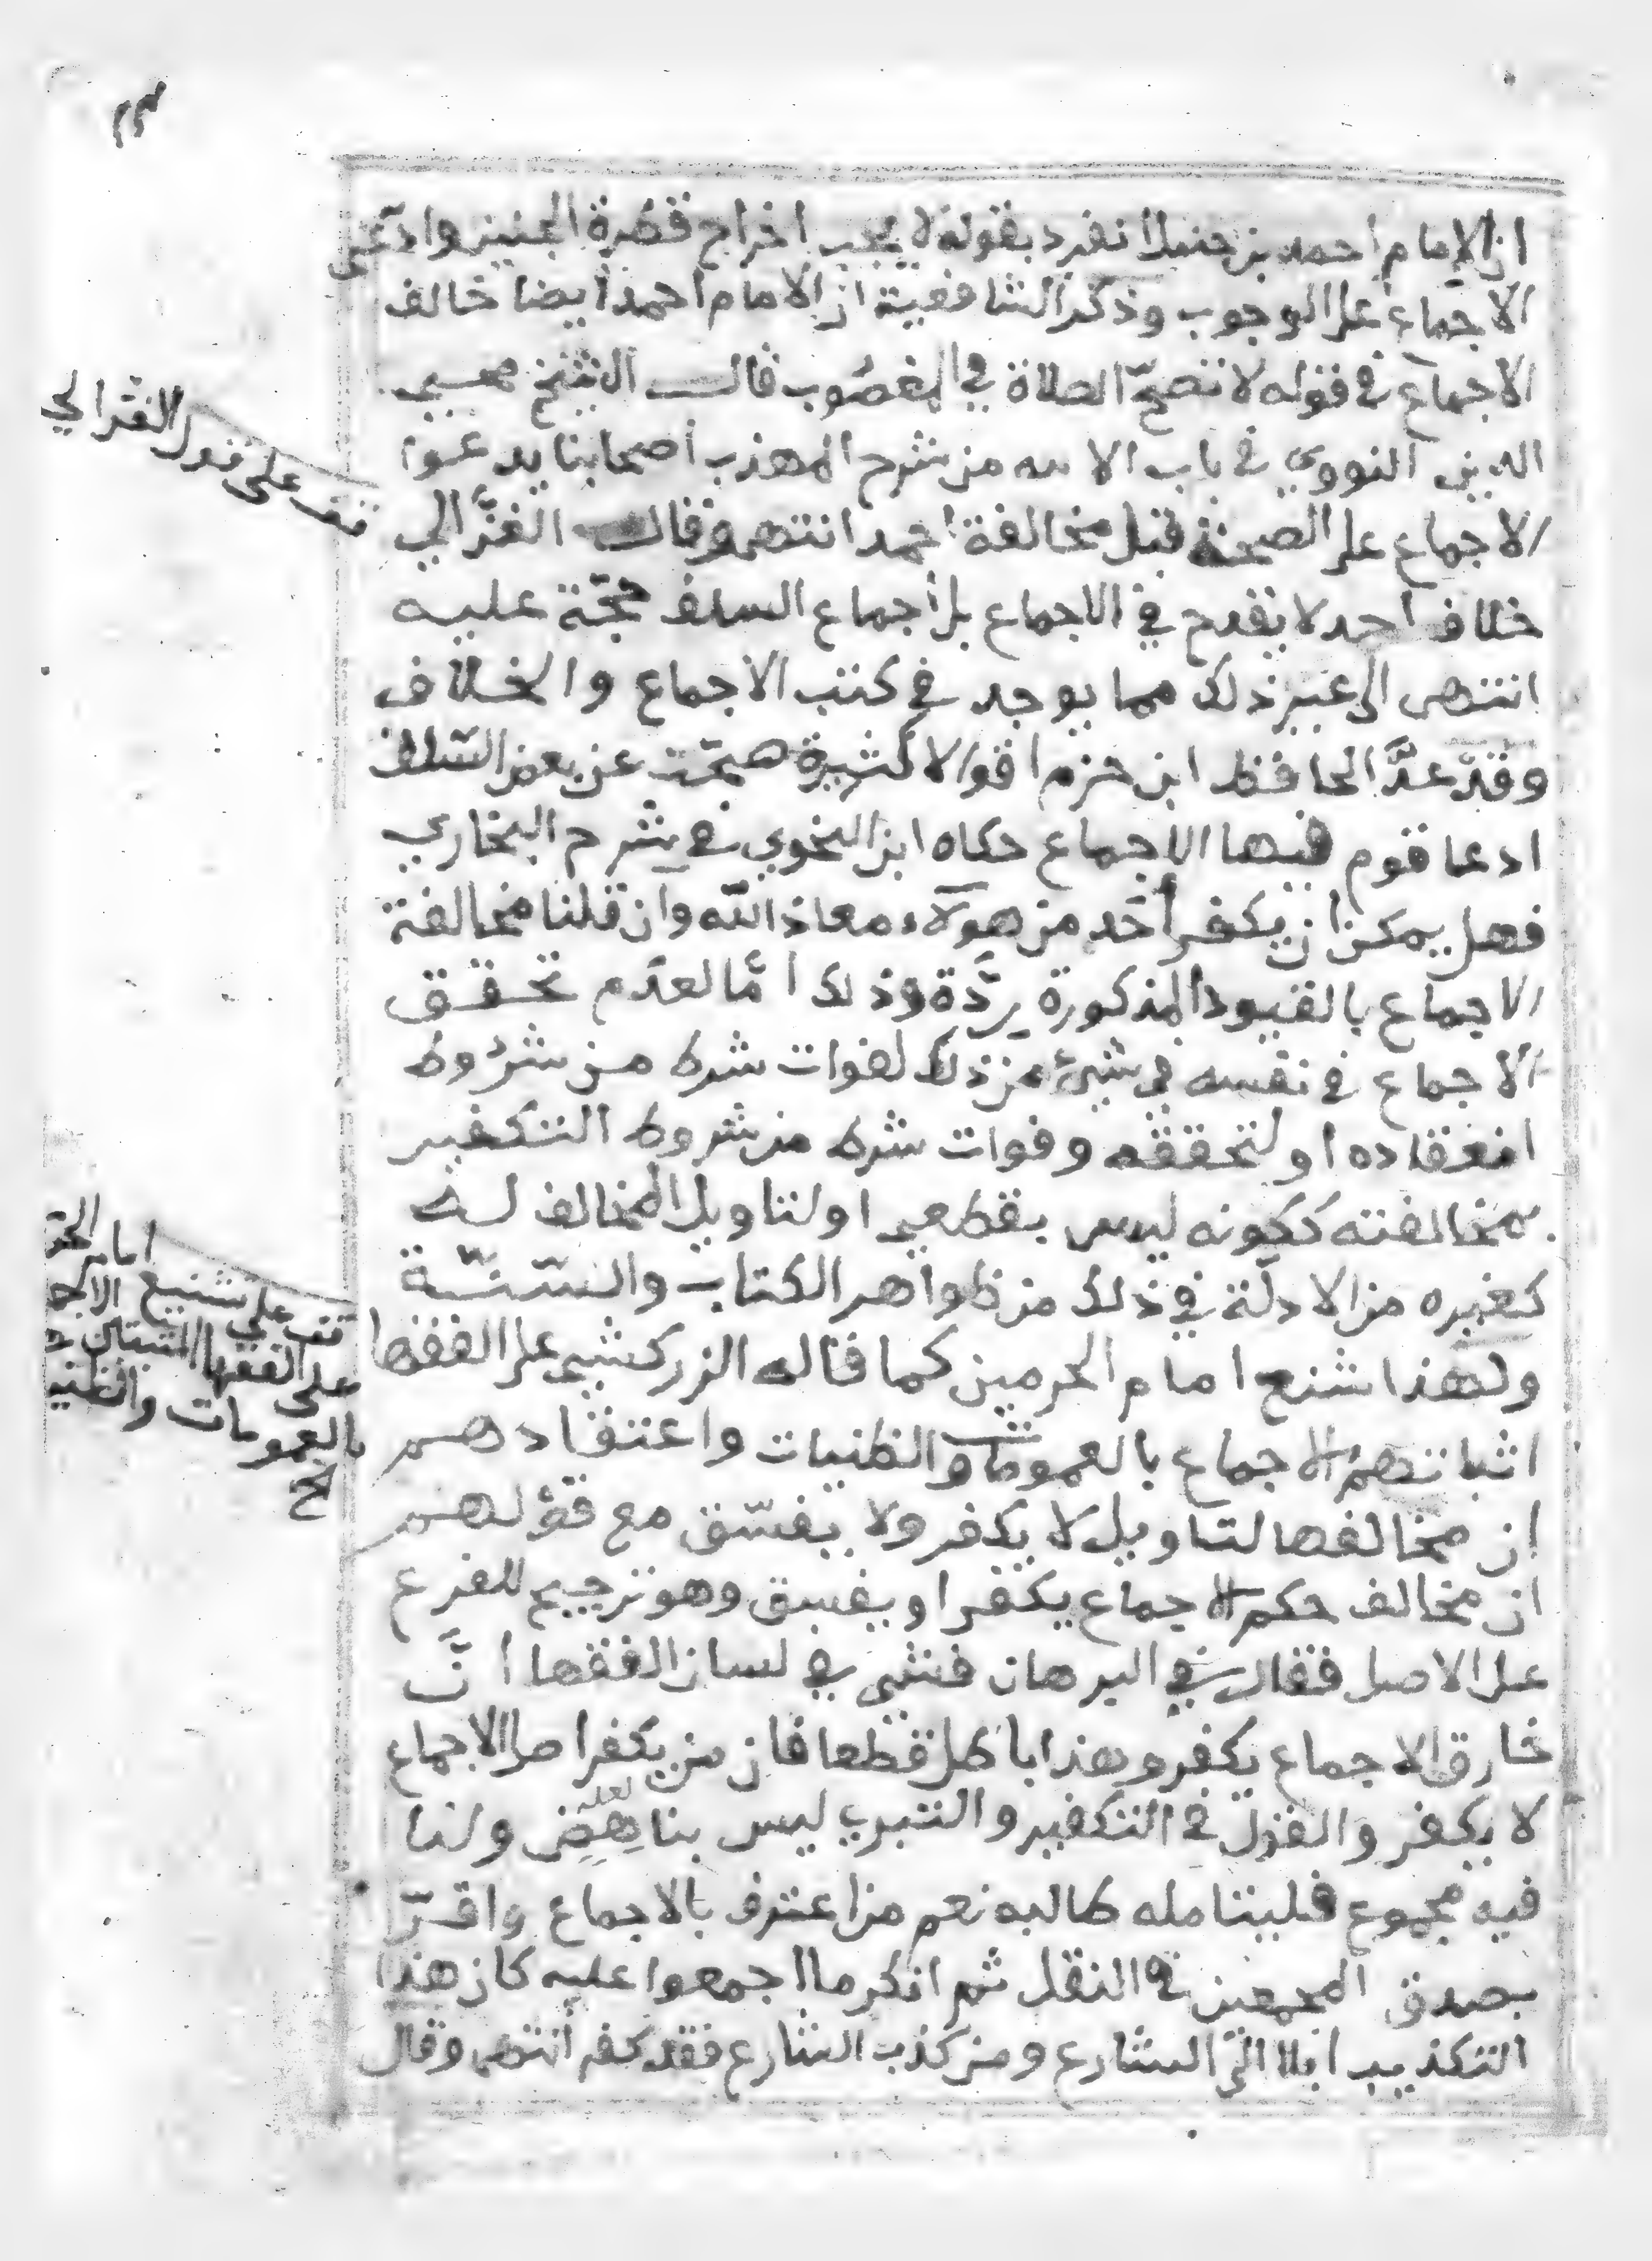 ٢٣
ان الامام احمد بن حنبل انفرد بقوله يجب اخراج فطرة الجنين وادعى
الاجماع على الوجوب وذكر الشافعية ان الامام احمد ايضا خالف
الاجماع في قوله لا تصح الصلاة في المغصوب قال الشيخ محيي
الدين النووي في باب الانيه من شرح المهذب أصحابنا يدعوا
الاجماع على الصحة قبل مخالفة احمد انتهى وقال الغزّالي
خلاف احمد لا يقدح في الاجماع بل أجماع السلف حجّة عليه
انتهى الى غير ذلك مما يوجد في كتب الاجماع والخلاف
وقد عدَّ الحافظ ابن حزم اقوالا كثيرة صحّت عن بعض السّلف
ادعا قوم فيها الاجماع حكاه ابن النحوي في شرح البخاري
فهل يمكن ان يكفر أحد من هولآء معاذ الله وان قلنا مخالفة
الاجماع بالقيود المذكورة ردّة وذلك امّا لعدم تحقق
الاجماع في نفسه في شيء من ذلك لفوات شرط من شروط
انعقاده او لتحققه وفوات شرط من شروط التكفير
بمخالفته ككونه ليس بقطعي او لتاويل المخالف له
كغيره من الادلّة في ذلك من ظواهر الكتاب والسّنّة
ولهذا شنع امام الحرمين كما قاله الزركشي على الفقها
اثباتهم الاجماع بالعمومات والظنيات واعتقادهم
ان مخالفها لتاويل لا يكفر ولا يفسّق مع قولهم
ان مخالف حكم الاجماع يكفر او يفسق وهو ترجيح للفرع
على الاصل فقال في البرهان فشى في لسان الفقها أنَّ
خارق الاجماع يكفر وهذا باطل قطعا فان من يكفر اصل الاجماع
لا يكفر والقول في التكفير والتبري ليس بناهِضٍ ولنا
لعله
فيه مجموع فليتامله طالبه نعم من اعترف بالاجماع واقرّ
بصدق المجمعين في النقل ثم انكر ما اجمعوا عليه كان هذا
التكذيب ايلا الى الشارع ومن كذب الشارع فقد كفر أنتهى وقال
قف على قول الغزالي
امام الحر
قف على تشنيع الاجـ
على الفقها المثبتين
بالعمومات والظنيـ
الخ